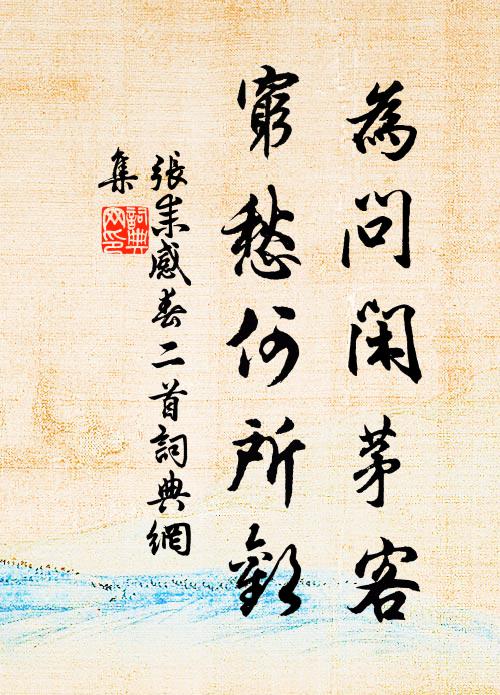 為問閑茅客
窮愁何所歡
張耒感春二首詞典網
集
詞典网印